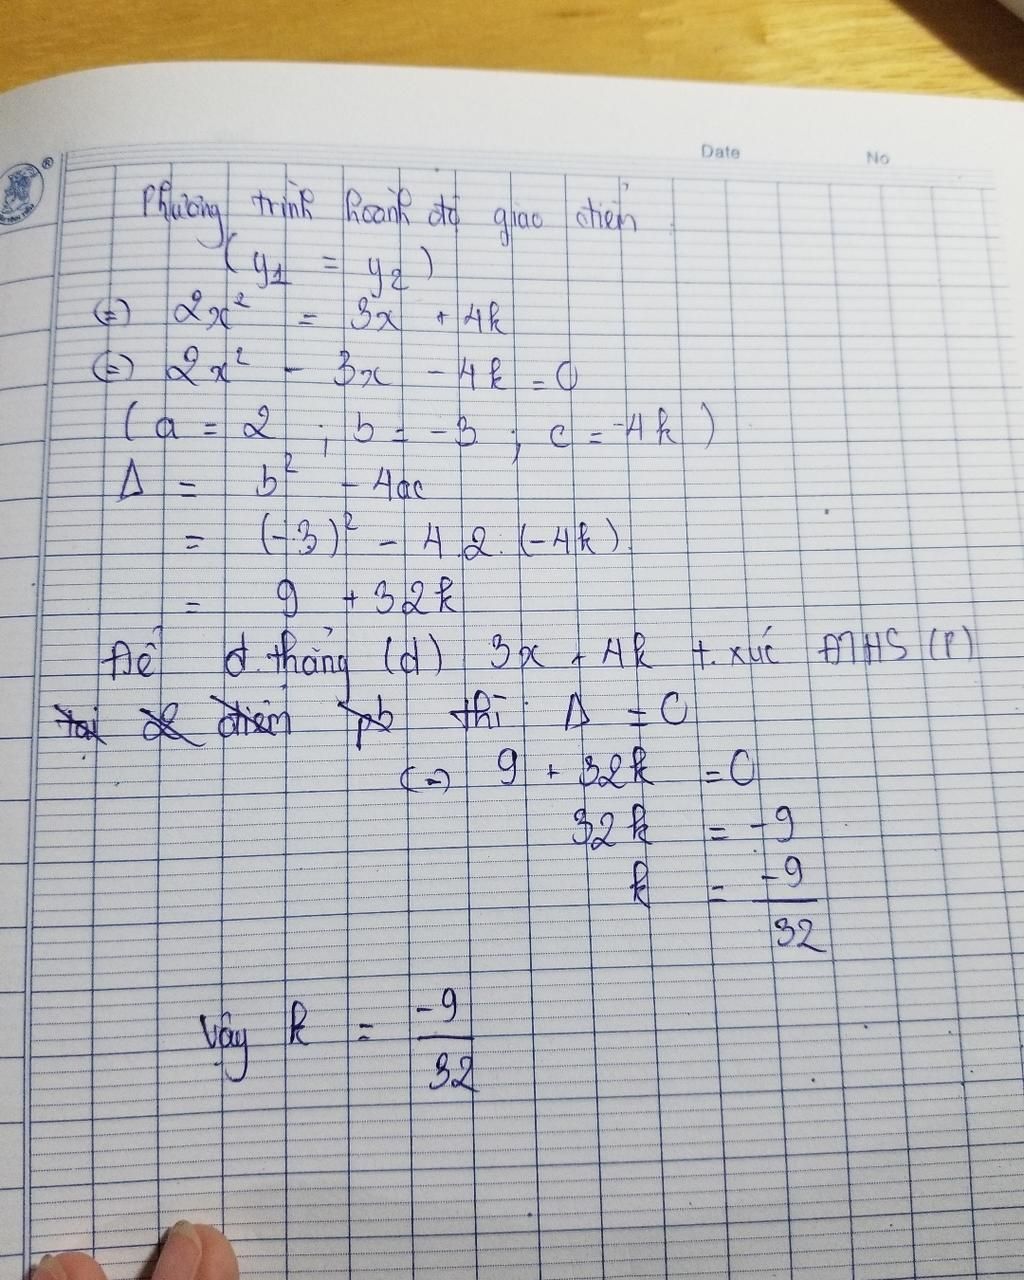 Date No
Phương trình hoành độ giao điểm
(y₁ = y₂)
(=) 2x² = 3x + 4k
(=) 2x² - 3x - 4k = 0
(a = 2 ; b = -3 ; c = -4k)
Δ = b² - 4ac
= (-3)² - 4.2.(-4k)
= 9 + 32k
Để đ.thẳng (d) 3x + 4k t.xúc ĐTHS (P)
tại 2 điểm pb thì Δ = 0
(=) 9 + 32k = 0
32k = -9
k = -9/32
Vậy k = -9/32